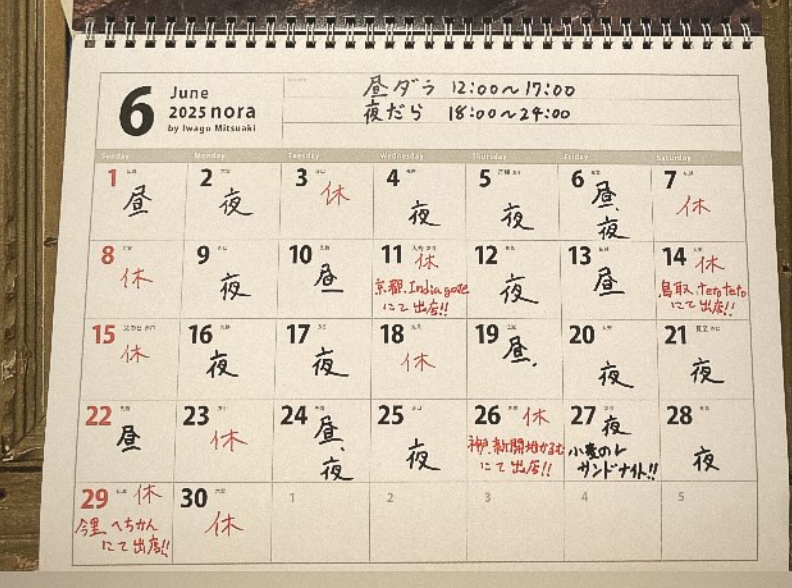 6
June
2025 nora
by Iwago Mitsuaki
昼ダラ 12:00〜17:00
夜だら 18:00〜24:00
Sunday Monday Tuesday Wednesday Thursday Friday Saturday
1 昼
2 夜
3 休
4 夜
5 夜
6 昼、
夜
7 休
8 休
9 夜
10 昼
11 休
京都.India gate
にて出店!!
12 夜
13 昼
14 休
鳥取.teroteto
にて出店!!
15 父の日
休
16 夜
17 夜
18 休
19 昼.
20 夜
21 夜
22 昼
23 休
24 昼、
夜
25 夜
26 休
神戸.新開地かるむ
にて出店!!
27 夜
サンドナイト!!
28 夜
29 休
今里 へちかん
にて出店!!
30 休
1 2 3 4 5